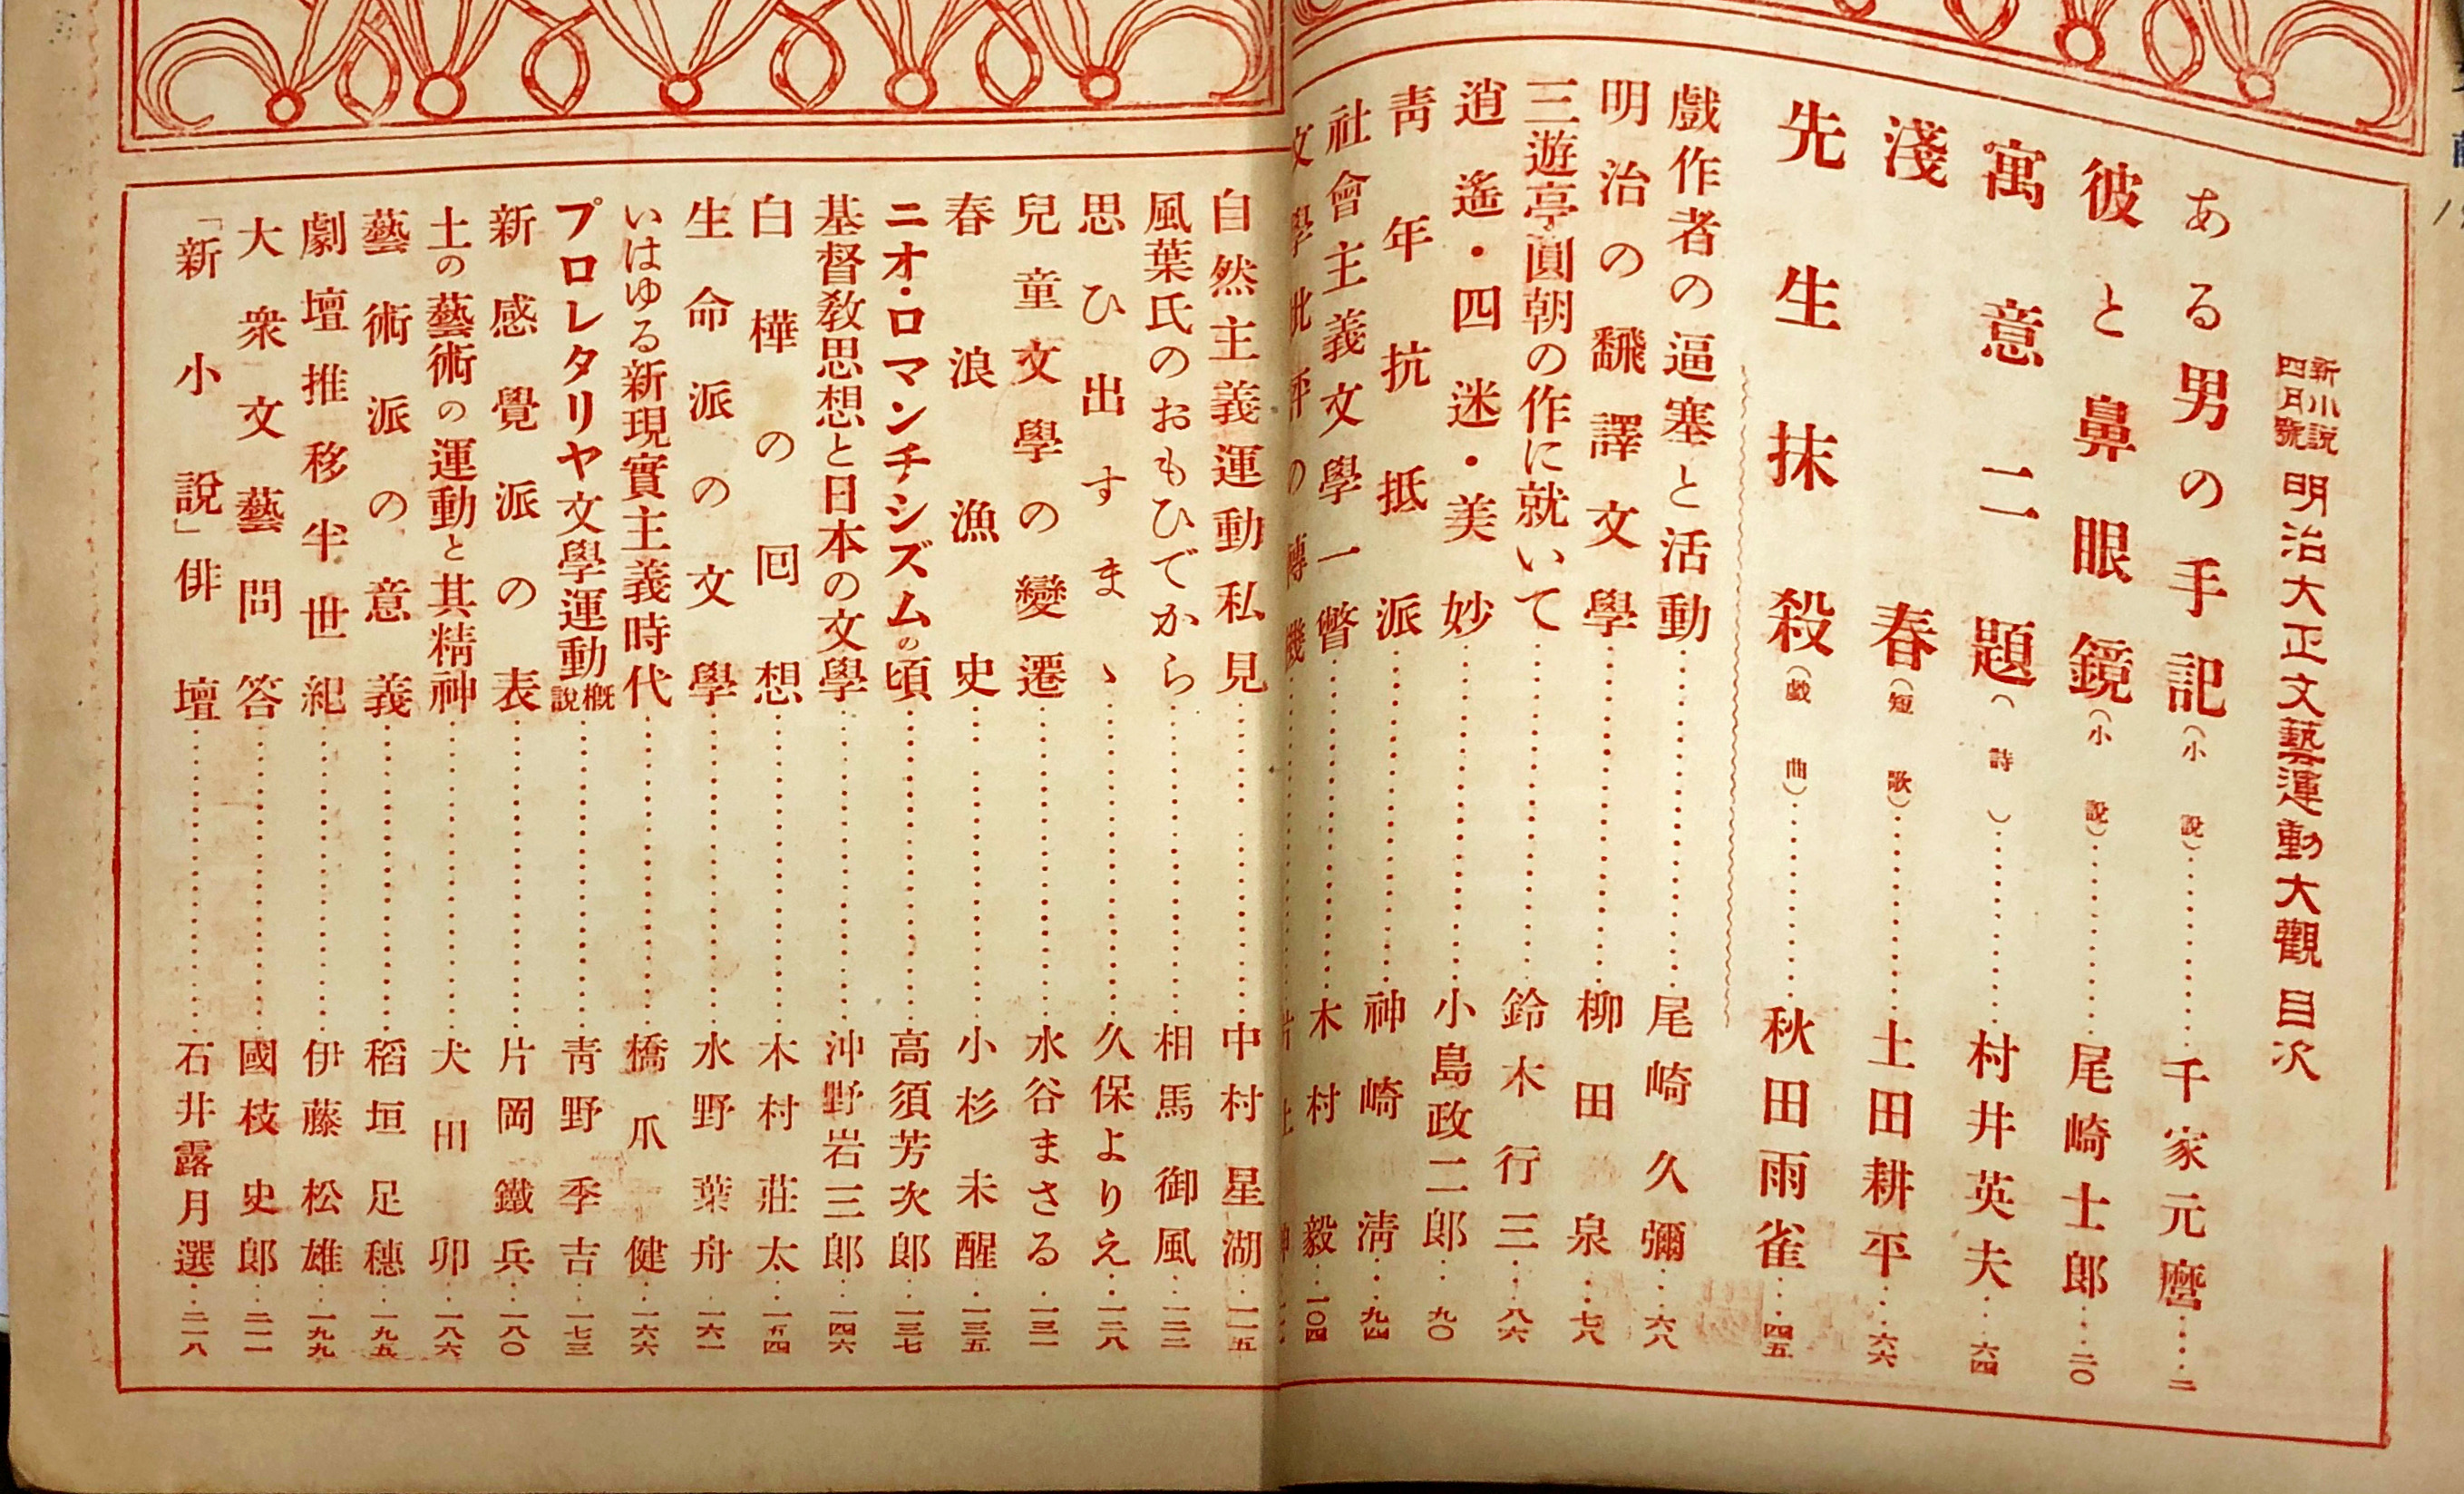 新小說四月號 明治大正文藝運動大觀 目次
ある男の手記(小說)……千家元麿……二
彼と鼻眼鏡(小說)……尾崎士郎……二〇
寓意二題(詩)……村井英夫……六四
淺春(短歌)……土田耕平……六六
先生抹殺(戲曲)……秋田雨雀……四五
戲作者の逼塞と活動……尾崎久彌……六八
明治の飜譯文學……柳田泉……七八
三遊亭圓朝の作に就いて……鈴木行三……八六
逍遙・四迷・美妙……小島政二郎……九〇
靑年抗抵派……神崎淸……九四
社會主義文學一瞥……木村毅……一〇四
文學批評の轉機……片上伸
自然主義運動私見……中村星湖……一一五
風葉氏のおもひでから……相馬御風……一二二
思ひ出すまゝ……久保よりえ……一二八
兒童文學の變遷……水谷まさる……一三一
春浪漁史……小杉未醒……一三五
ニオ・ロマンチシズムの頃……高須芳次郎……一三七
基督敎思想と日本の文學……沖野岩三郎……一四六
白樺の囘想……木村莊太……一五四
生命派の文學……水野葉舟……一六一
いはゆる新現實主義時代……橋爪健……一六六
プロレタリヤ文學運動槪說……靑野季吉……一七三
新感覺派の表……片岡鐵兵……一八〇
土の藝術の運動と其精神……犬田卯……一八六
藝術派の意義……稻垣足穗……一九五
劇壇推移半世紀……伊藤松雄……一九九
大衆文藝問答……國枝史郎……二一一
「新小說」俳壇……石井露月選……二一八